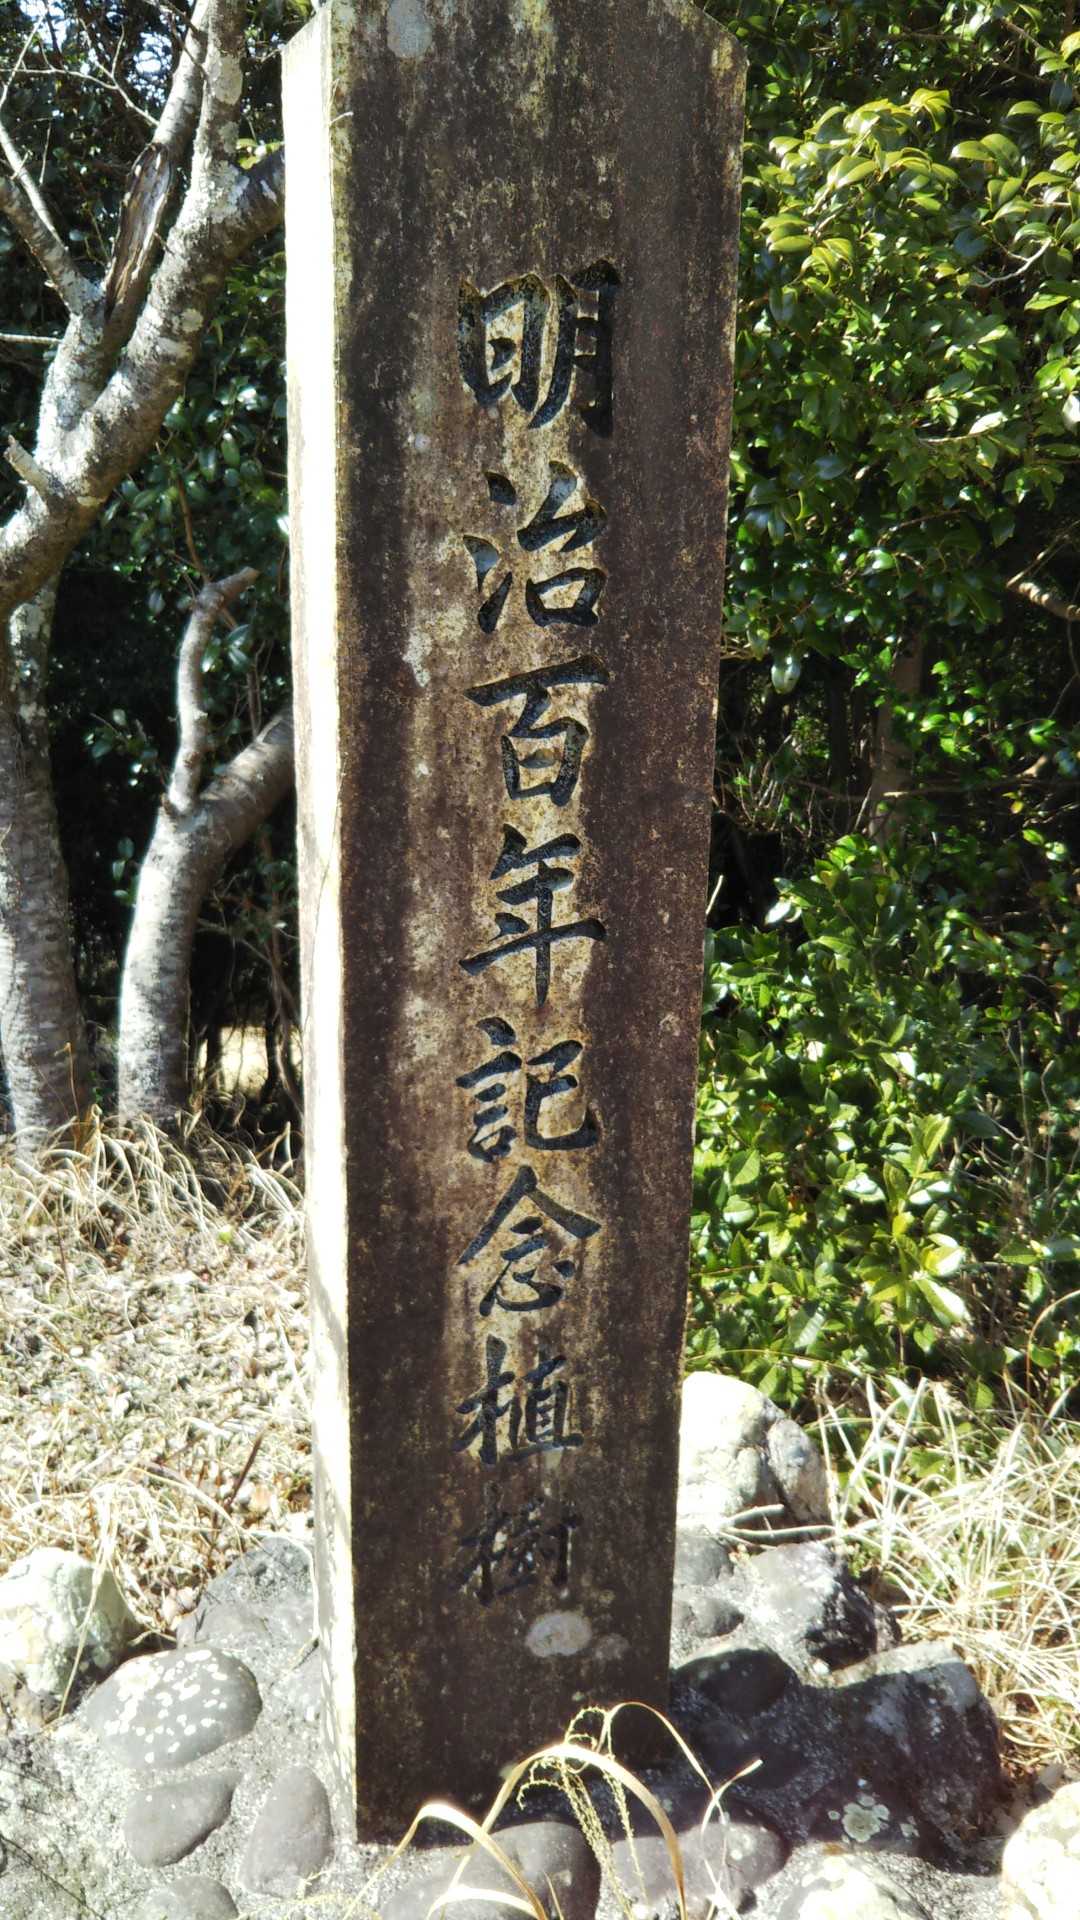 明治百年記念植樹